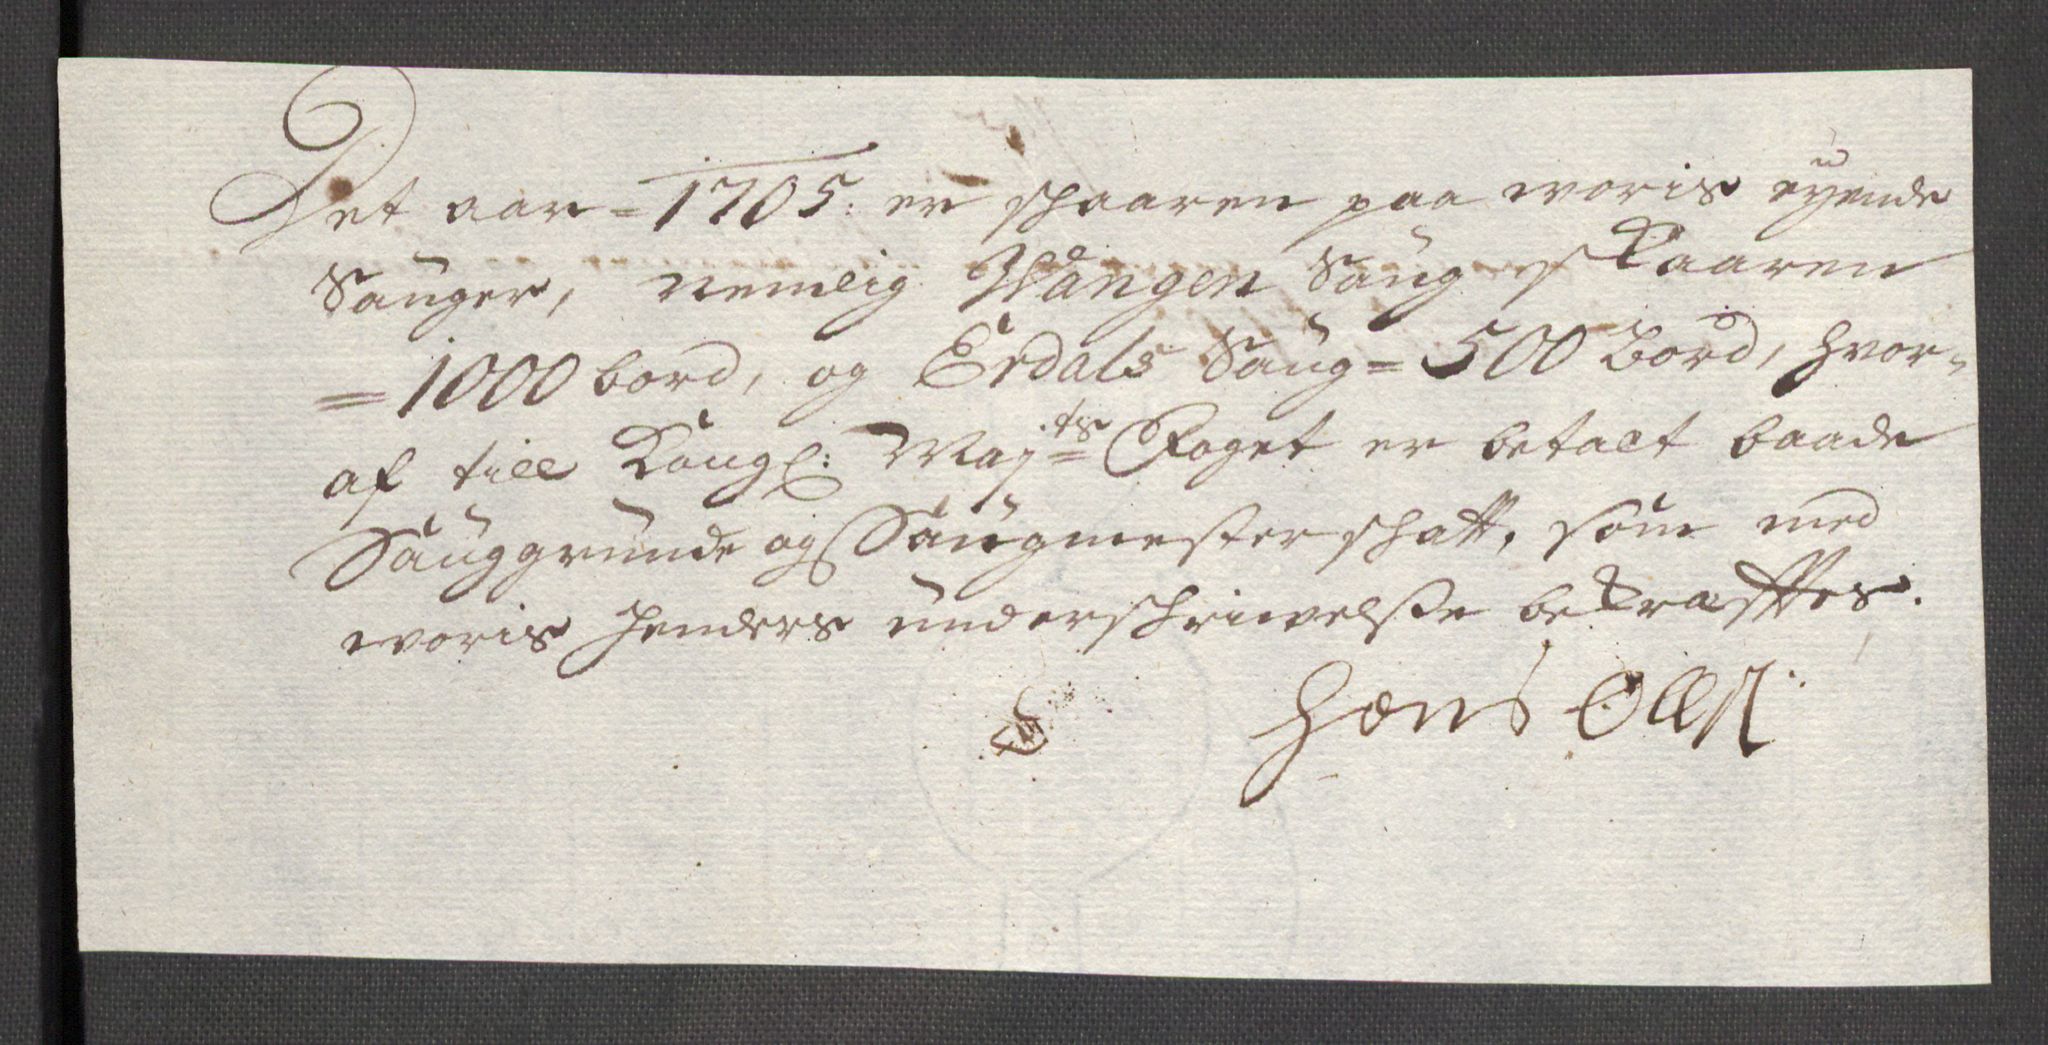 Det aar = 1705. er schaaren paa woris eyende
Sauger, nemlig Wangen Saug skaaren
= 1000 bord, og Erdals Saug = 500 Bord, hvor=
af till Kongl: Maj:ts Foget er betalt baade
Sauggrunde og Saugmesterschatt, som med
woris henders underschriwelsse bekræfftes.
Hans Olls